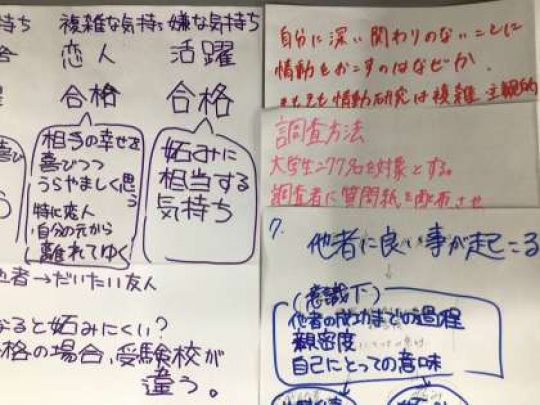 持ち 複雑な気持ち 嫌な気持ち
恋人 活躍
合格 合格
相手の幸せを
喜びつつ
うらやましく思う
特に恋人
自分の元から
離れてゆく
妬みに
相当する
気持ち
他者→だいたい友人
なると妬みにくい?
格の場合、受験校が
違う。
自分に深い関わりのないことに
情動をおこすのはなぜか.
そもそも情動研究は複雑 主観的
調査方法
大学生277名を対象とする。
調査者に質問紙を配布させ
7.
他者に良い事が起こる
(意識下)
他者の成功までの過程
親密度
自己にとっての意味